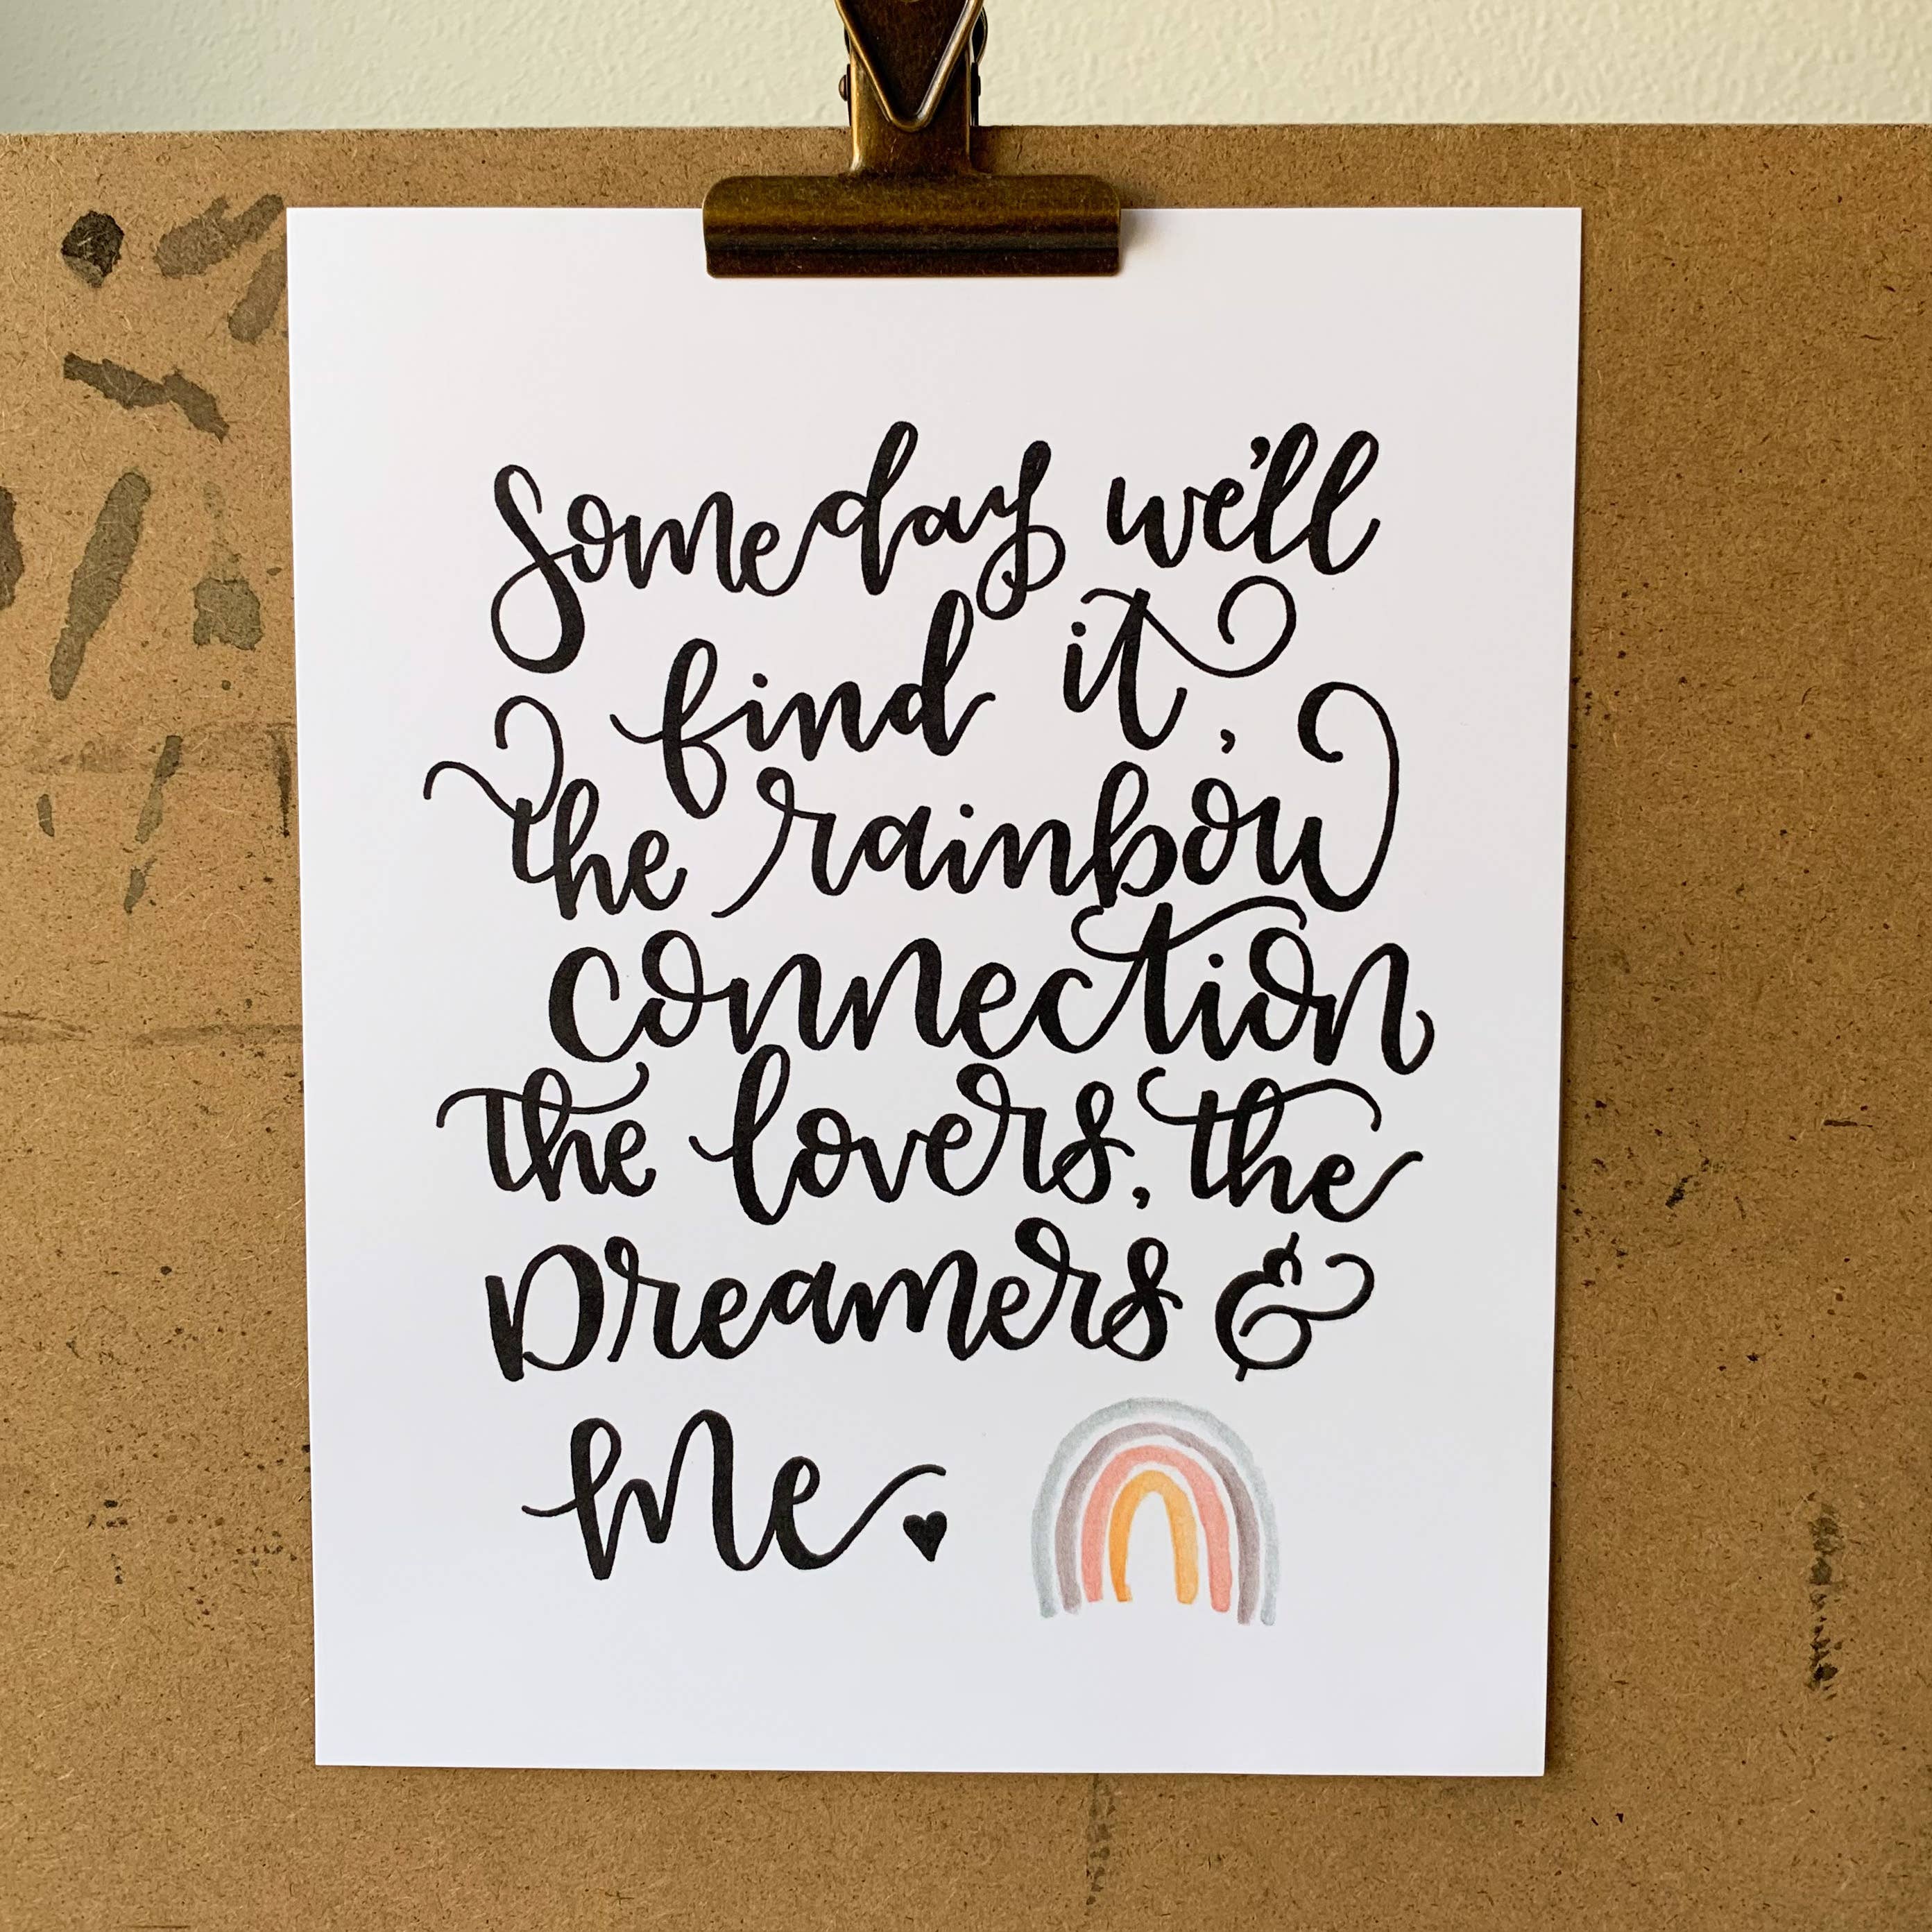 someday we'll
find it,
the rainbow
connection
the lovers, the
Dreamers &
me